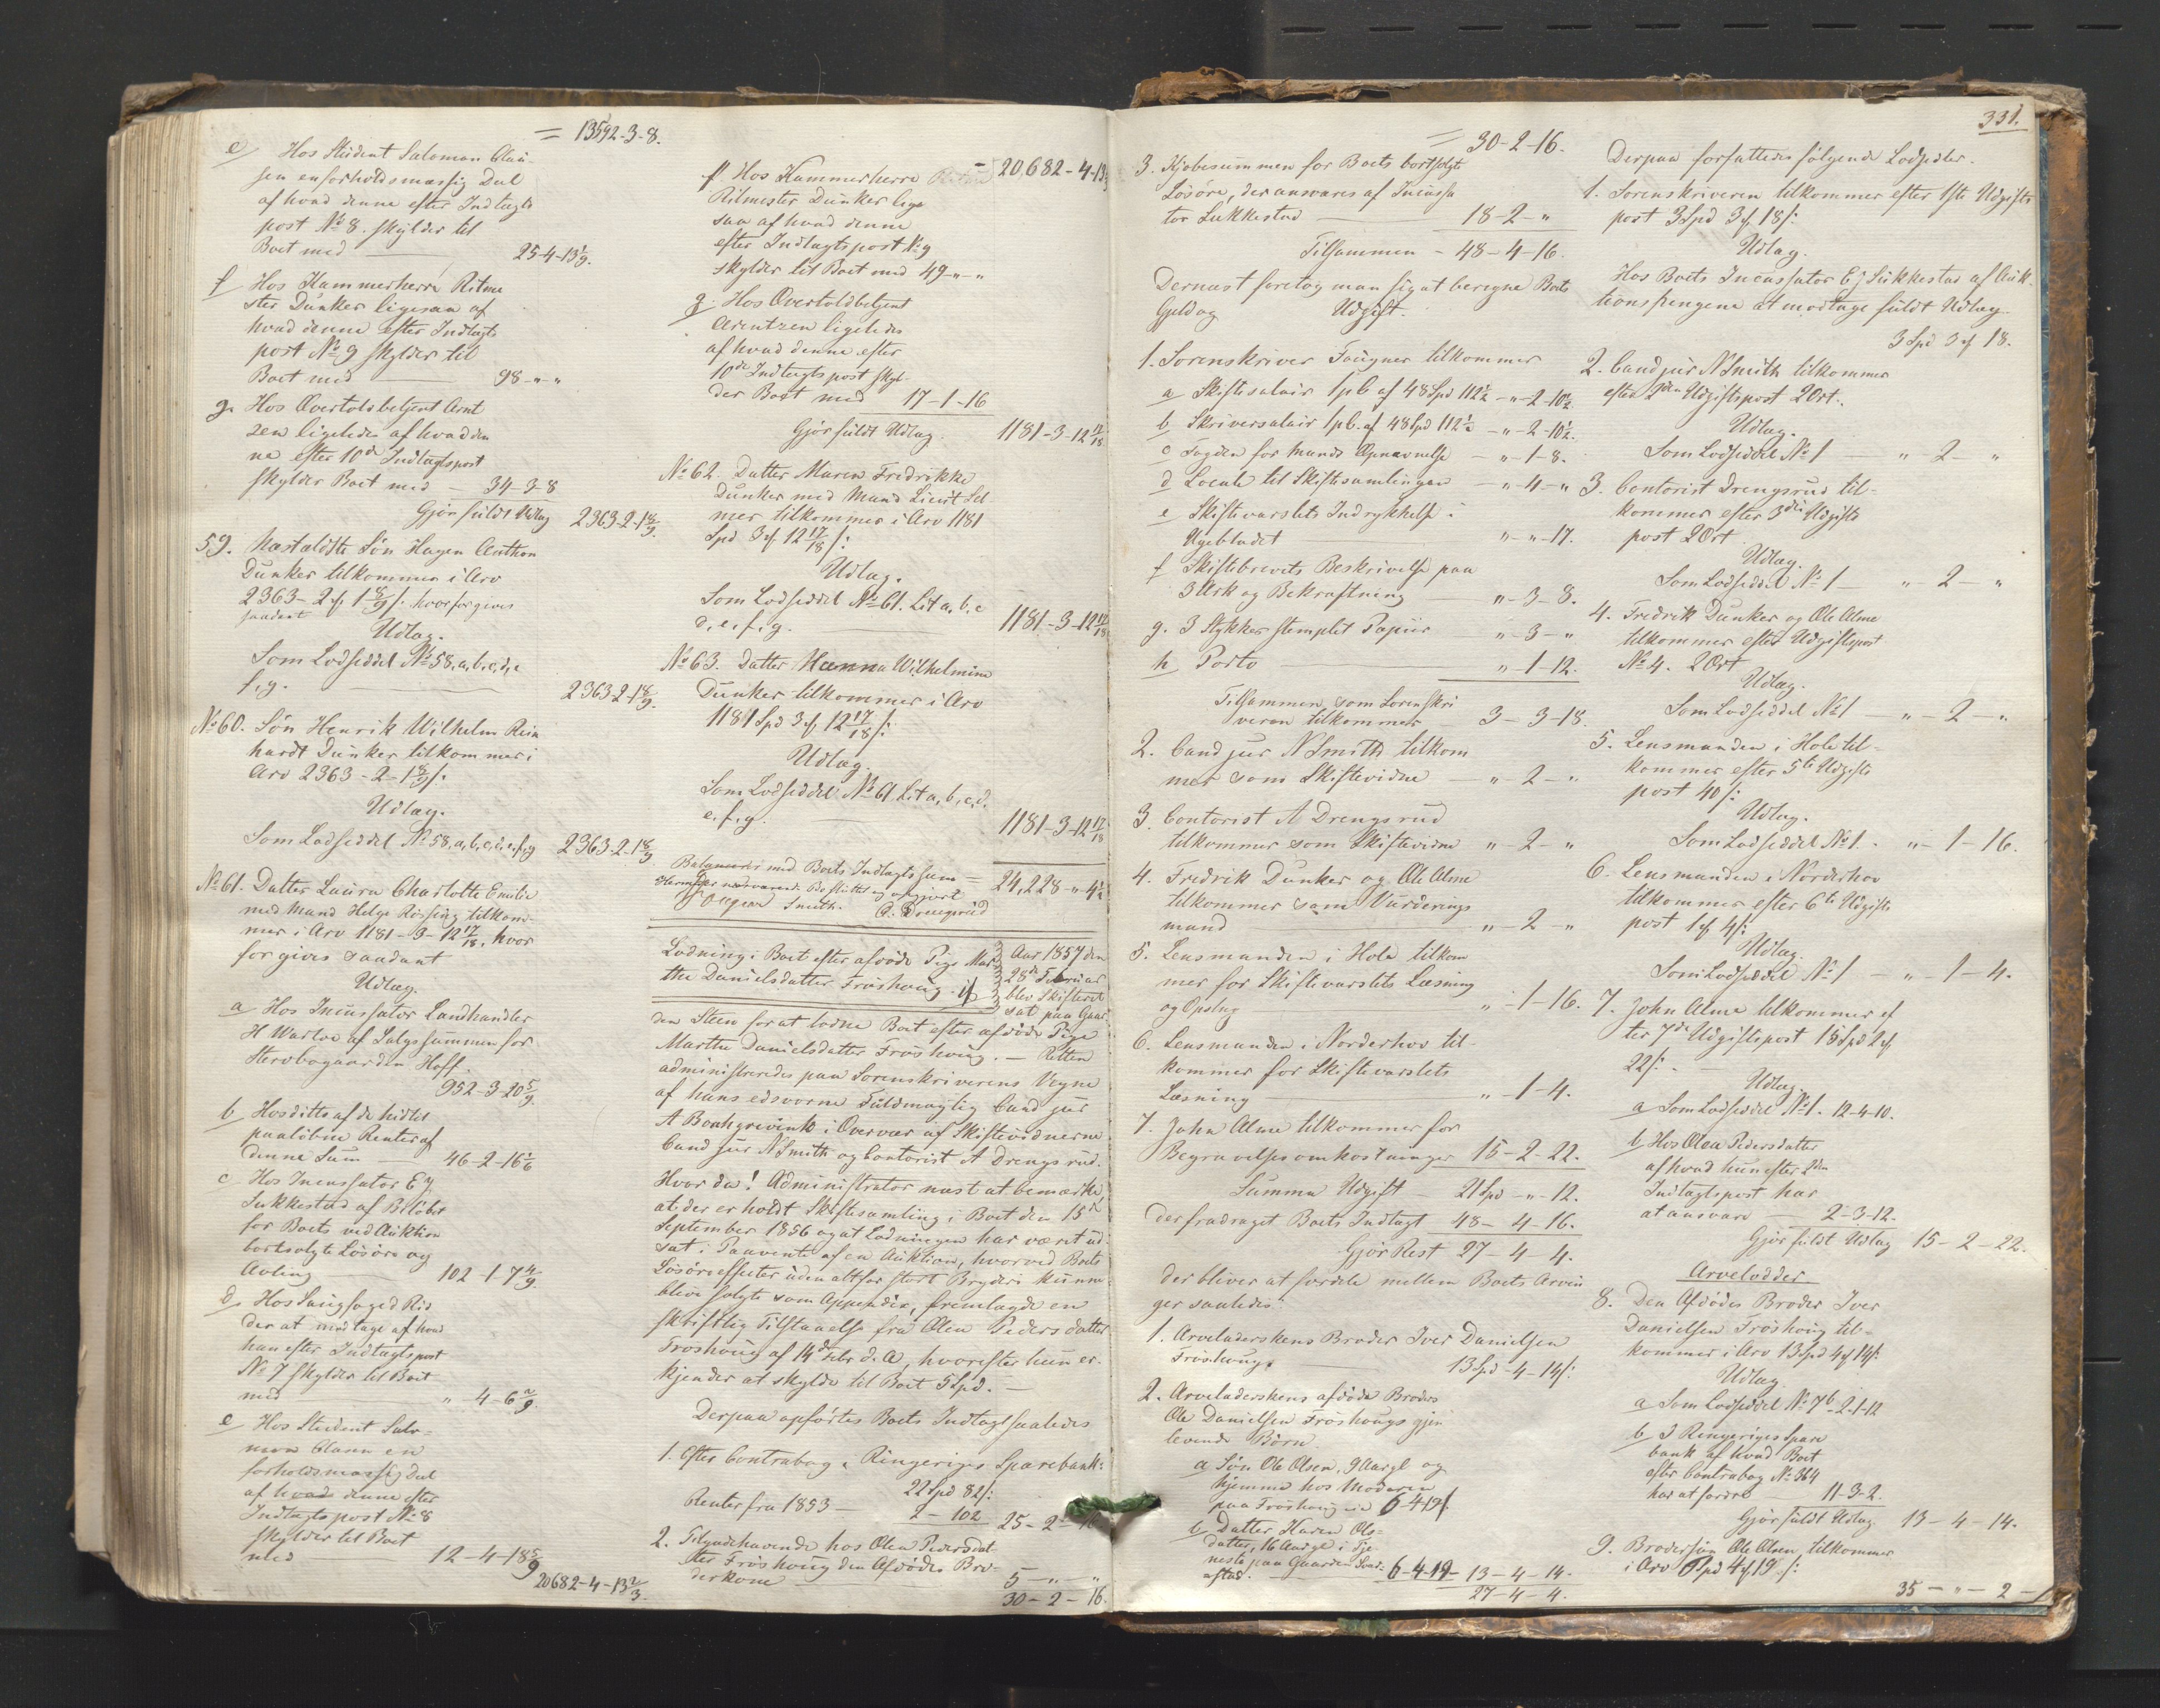 = 13592-3-8.
e/ Hos Student Saloman Clau-
sen en forholdsmæssig Deel
af hvad denne efter Indtægts
post No 8. skylder til
Boet med — 25-4-13 1/9.
f Hos Kammerherre Ritme
ster Dunker ligesaa af
hvad denne efter Indtægts
post No 9 skylder til
Boet med — 98-"-"
g. Hos Overtoldbetjent Arnt
zen ligeledes af hvad den
ne efter 10de Indtægtspost
skylder Boet med — 34-3-8
Gjør fuldt Udlæg 2363-2-1 8/9.
59. Næstældste Søn Hagen Anthon
Dunker tilkommer i Arv
2363-2 ₰ 1 8/9 s. hvorfor gives
saadant
Udlæg.
Som Lodseddel No 58, a, b, c, d, e
f, g. — 2363-2-1 8/9.
No 60. Søn Henrik Wilhelm Rein
hardt Dunker tilkommer i
Arv 2363-2-1 8/9 s:
Udlæg.
Som Lodseddel No 58, a, b, c, d, e, f, g 2363-2-1 8/9
No 61. Datter Laura Charlotte Emilie
med Mand Helge Rössing tilkom-
mer i Arv 1181-3-12 17/18, hvor
for gives saadant
Udlæg.
a Hos Incassator Landhandler
H Warloe af Salgssummen for
Stervbogaarden Hoff.
952-3-20 5/9.
b Hos ditto af de hidtil
paaløbne Renter af
denne Sum — 46-2-16 1/6
c Hos Incassator E J
Sukkestad af Beløbet
for Boets ved Auktion
bortsolgte Løsøre og
Avling — 102-1-7 4/9.
d Hos Saugfoged Rid
der at modtage af hvad
han efter Indtægtspost
No 7 skylder til Boet
med — "-4-6 2/9.
e Hos Student Salo-
mon Clasen en
forholdsmæssig Deel
af hvad denne efter
Indtægtspost No 8
skylder til Boet
med — 12-4-18 5/9
20682-4-13 2/3.
f. Hos Kammerherre — 20,682-4-13
Ritmester Dunker lige
saa af hvad denne
efter Indtægtspost No 9
skylder til Boet med 49-"-"
g. Hos Overtoldbetjent
Arentzen ligeledes
af hvad denne efter
10de Indtægtspost skyl-
der Boet med 17-1-16
Gjør fuldt Udlæg. 1181-3-12 17/18
No 62 Datter Maren Fredrikke
Dunker med Mand Lieut Sel
mer tilkommer i Arv 1181
Spd 3 ₰ 12 17/18 s:
Udlæg.
Som Lodseddel No 61. Lit a, b, c
d, e, f, g. — 1181-3-12 17/18
No 63. Datter Hanna Wilhelmine
Dunker tilkommer i Arv
1181 Spd 3 ₰ 12 17/18 s:
Udlæg.
Som Lodseddel No 61. Lit a, b, c, d,
e, f, g. — 1181-3-12 17/18
Balancerer med Boets Indtægtssum = 24,228-"-4 1/2
Smith. A. Drengsrud
Lodning i Boet efter afdøde Pige Mar
the Danielsdatter Frøshoug.
Aar 1857 den
28de Februar
blev Skifteret
sat paa Gaar
den Steen for at lodne Boet efter afdøde Pige
Marthe Danielsdatter Frøshoug. — Retten
administreredes paa Sorenskriverens Vegne
af hans edsvorne Fuldmægtig Cand jur
A Bonhgrevink i Overvær af Skiftevidnerne
Cand jur N Smith og Contorist A Drengsrud.
Hvor da! Administrator næst at bemærke,
at der er holdt Skiftesamling i Boet den 15de
September 1856 og at Lodningen har været ud
sat i Paavente af en Auktion, hvorved Boets
Løsøreeffecter uden altfor stort Bryderi kunne
blive solgte som Appendix, fremlagde en
skriftlig Tilstaaelse fra Olea Pedersdatter
Frøshoug af 14de Febr d. A, hvorefter hun er-
kjender at skylde til Boet 5 Spd. —
Derpaa opførtes Boets Indtægt saaledes
1. Efter Contrabog i Ringeriges Sparebank:
22 Spd 82 s:
Renter fra 1853 — 2-102 25-2-16
2. Tilgodehavende hos Olea Pedersdat
ter Frøshoug den Afdødes Bro-
derkone — 5-"-"
30-2-16.
331.
= 30-2-16.
3. Kjøbesummen for Boets bortsolgte
Løsøre, der ansvares af Incassa
tor Sukkestad — 18-2-"
Tilsammen - 48-4-16.
Dernæst foretog man sig at beregne Boets
Gjeld og Udgift.
1. Sorenskriver Faugner tilkommer
a Skiftesalair 1 pCt af 48 Spd 112 1/2 - "-2-10 1/2.
b Skriversalair 1 pCt. af 48 Spd 112 1/2 - "-2-10 1/2.
c Fogden for Mænds Opnævnelse - "-1-8.
d Locale til Skiftesamlingen - "-4-"
e Skiftevarslets Indrykkelse i
Ugebladet — "-"-17.
f Skiftebrevets Beskrivelse paa
3 Ark og Bekræftning — "-3-8.
g. 3 Stykker stemplet Papiir "-3-"
h Porto — "-1-12.
Tilsammen, som Sorenskri
veren tilkommer 3-3-18.
2. Cand jur N Smith tilkom
mer som Skiftevidne — "-2-".
3. Contorist A Drengsrud
tilkommer som Skiftevidne "-2-"
4. Fredrik Dunker og Ole Alme
tilkommer som Vurderings
mænd — "-2-"
5. Lensmanden i Hole tilkom
mer for Skiftevarslets Læsning
og Opslag — "-1-16.
6. Lensmanden i Norderhov til-
kommer for Skiftevarslets
Læsning — "-1-4.
7. John Alme tilkommer for
Begravelsesomkostninger 15-2-22.
Summa Udgift - 21 Spd-"-12.
der fradraget Boets Indtægt 48-4-16.
Gjør Rest 27-4-4.
der bliver at fordele mellem Boets Arvin
ger saaledes:
1. Arveladerskens Broder Iver Danielsen
Frøshoug. — 13 Spd-4-14 s:
2. Arveladerskens afdøde Broders
Ole Danielsen Frøshougs gjen
levende Børn.
a Søn Ole Olsen, 9 Aargl og
hjemme hos Moderen
paa Frøshoug 6-4-19
b Datter Karen Ols-
datter, 16 Aargl i Tje
neste paa Gaarden Svar-
stad. — 6-4-19 — 13-4-14.
27-4-4.
Derpaa forfattedes følgende Lodsedler.
1. Sorenskriveren tilkommer efter 1ste Udgifts
post 3 Spd 3 ₰ 18 s:
Udlæg.
Hos Boets Incassator E J Sukkestad af Auk-
tionspengene at modtage fuldt Udlæg.
3 Spd 3 ₰ 18.
2. Cand jur N Smith tilkommer
efter 2den Udgiftspost 2 Ort.
Udlæg.
Som Lodseddel No 1 — "-2-"
3. Contorist Drengsrud til-
kommer efter 3die Udgifts
post 2 Ort
Udlæg.
Som Lodseddel No 1 — "-2-"
4. Fredrik Dunker og Ole Alme
tilkommer efter Udgiftspost
No 4. 2 Ort
Udlæg.
Som Lodseddel No 1 — "-2-"
5. Lensmanden i Hole til-
kommer efter 5te Udgifts
post 40 s:
Udlæg.
Som Lodseddel No 1. - "-1-16.
6. Lensmanden i Norderhov
tilkommer efter 6te Udgifts
post 1 ₰ 4 s:
Udlæg.
Som Lodseddel No 1 - "-1-4.
7. John Alme tilkommer ef
ter 7de Udgiftspost 15 Spd 2 ₰
22 s: -
Udlæg.
a Som Lodseddel No 1. 12-4-10.
b Hos Olea Pedersdatter
af hvad hun efter 2den
Indtægtspost har
at ansvare — 2-3-12.
Gjør fuldt Udlæg 15-2-22.
Arvelodder
8. Den Afdødes Broder Iver
Danielsen Frøshoug til-
kommer i Arv 13 Spd 4 ₰ 14 s:
Udlæg.
a Som Lodseddel No 7b - 2-1-12
b I Ringeriges Spare
bank af hvad Boet
efter Contrabog No 364
har at fordre — 11-3-2.
Gjør fuldt Udlæg 13-4-14.
9. Brodersøn Ole Olsen tilkommer
i Arv 6 Spd 4 ₰ 19 s:
35-"-2-